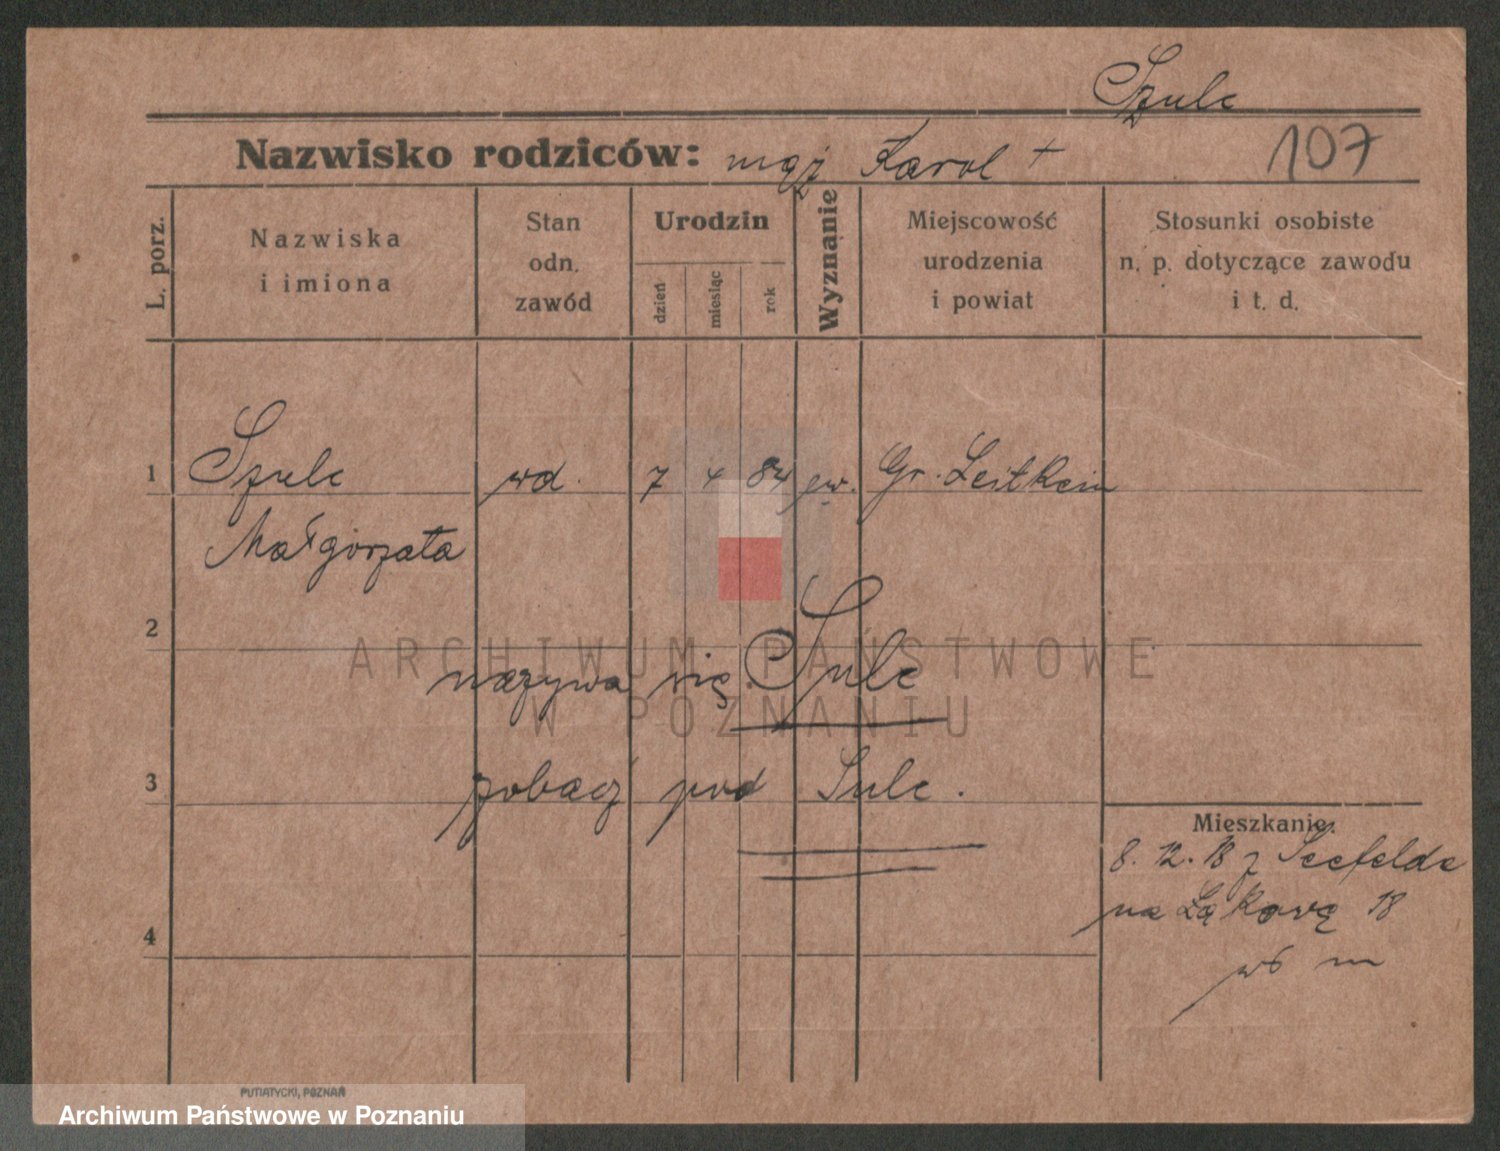 Szulc
Nazwisko rodziców: mąż Karol +
107
L. porz.
Nazwiska
i imiona
Stan
odn.
zawód
Urodzin
dzień
miesiąc
rok
Wyznanie
Miejscowość
urodzenia
i powiat
Stosunki osobiste
n. p. dotyczące zawodu
i t. d.
1 Szulc wd. 7 4 84 ew. Gr. Leitkein
Małgorzata
2
nazywa się Sulc
3 zobacz pod Sulc.
Mieszkanie:
8. 12. 18 z Seefelde
na Łąkową 18
4
ARCHIWUM PAŃSTWOWE
W POZNANIU
PUTIATYCKI, POZNAŃ
Archiwum Państwowe w Poznaniu